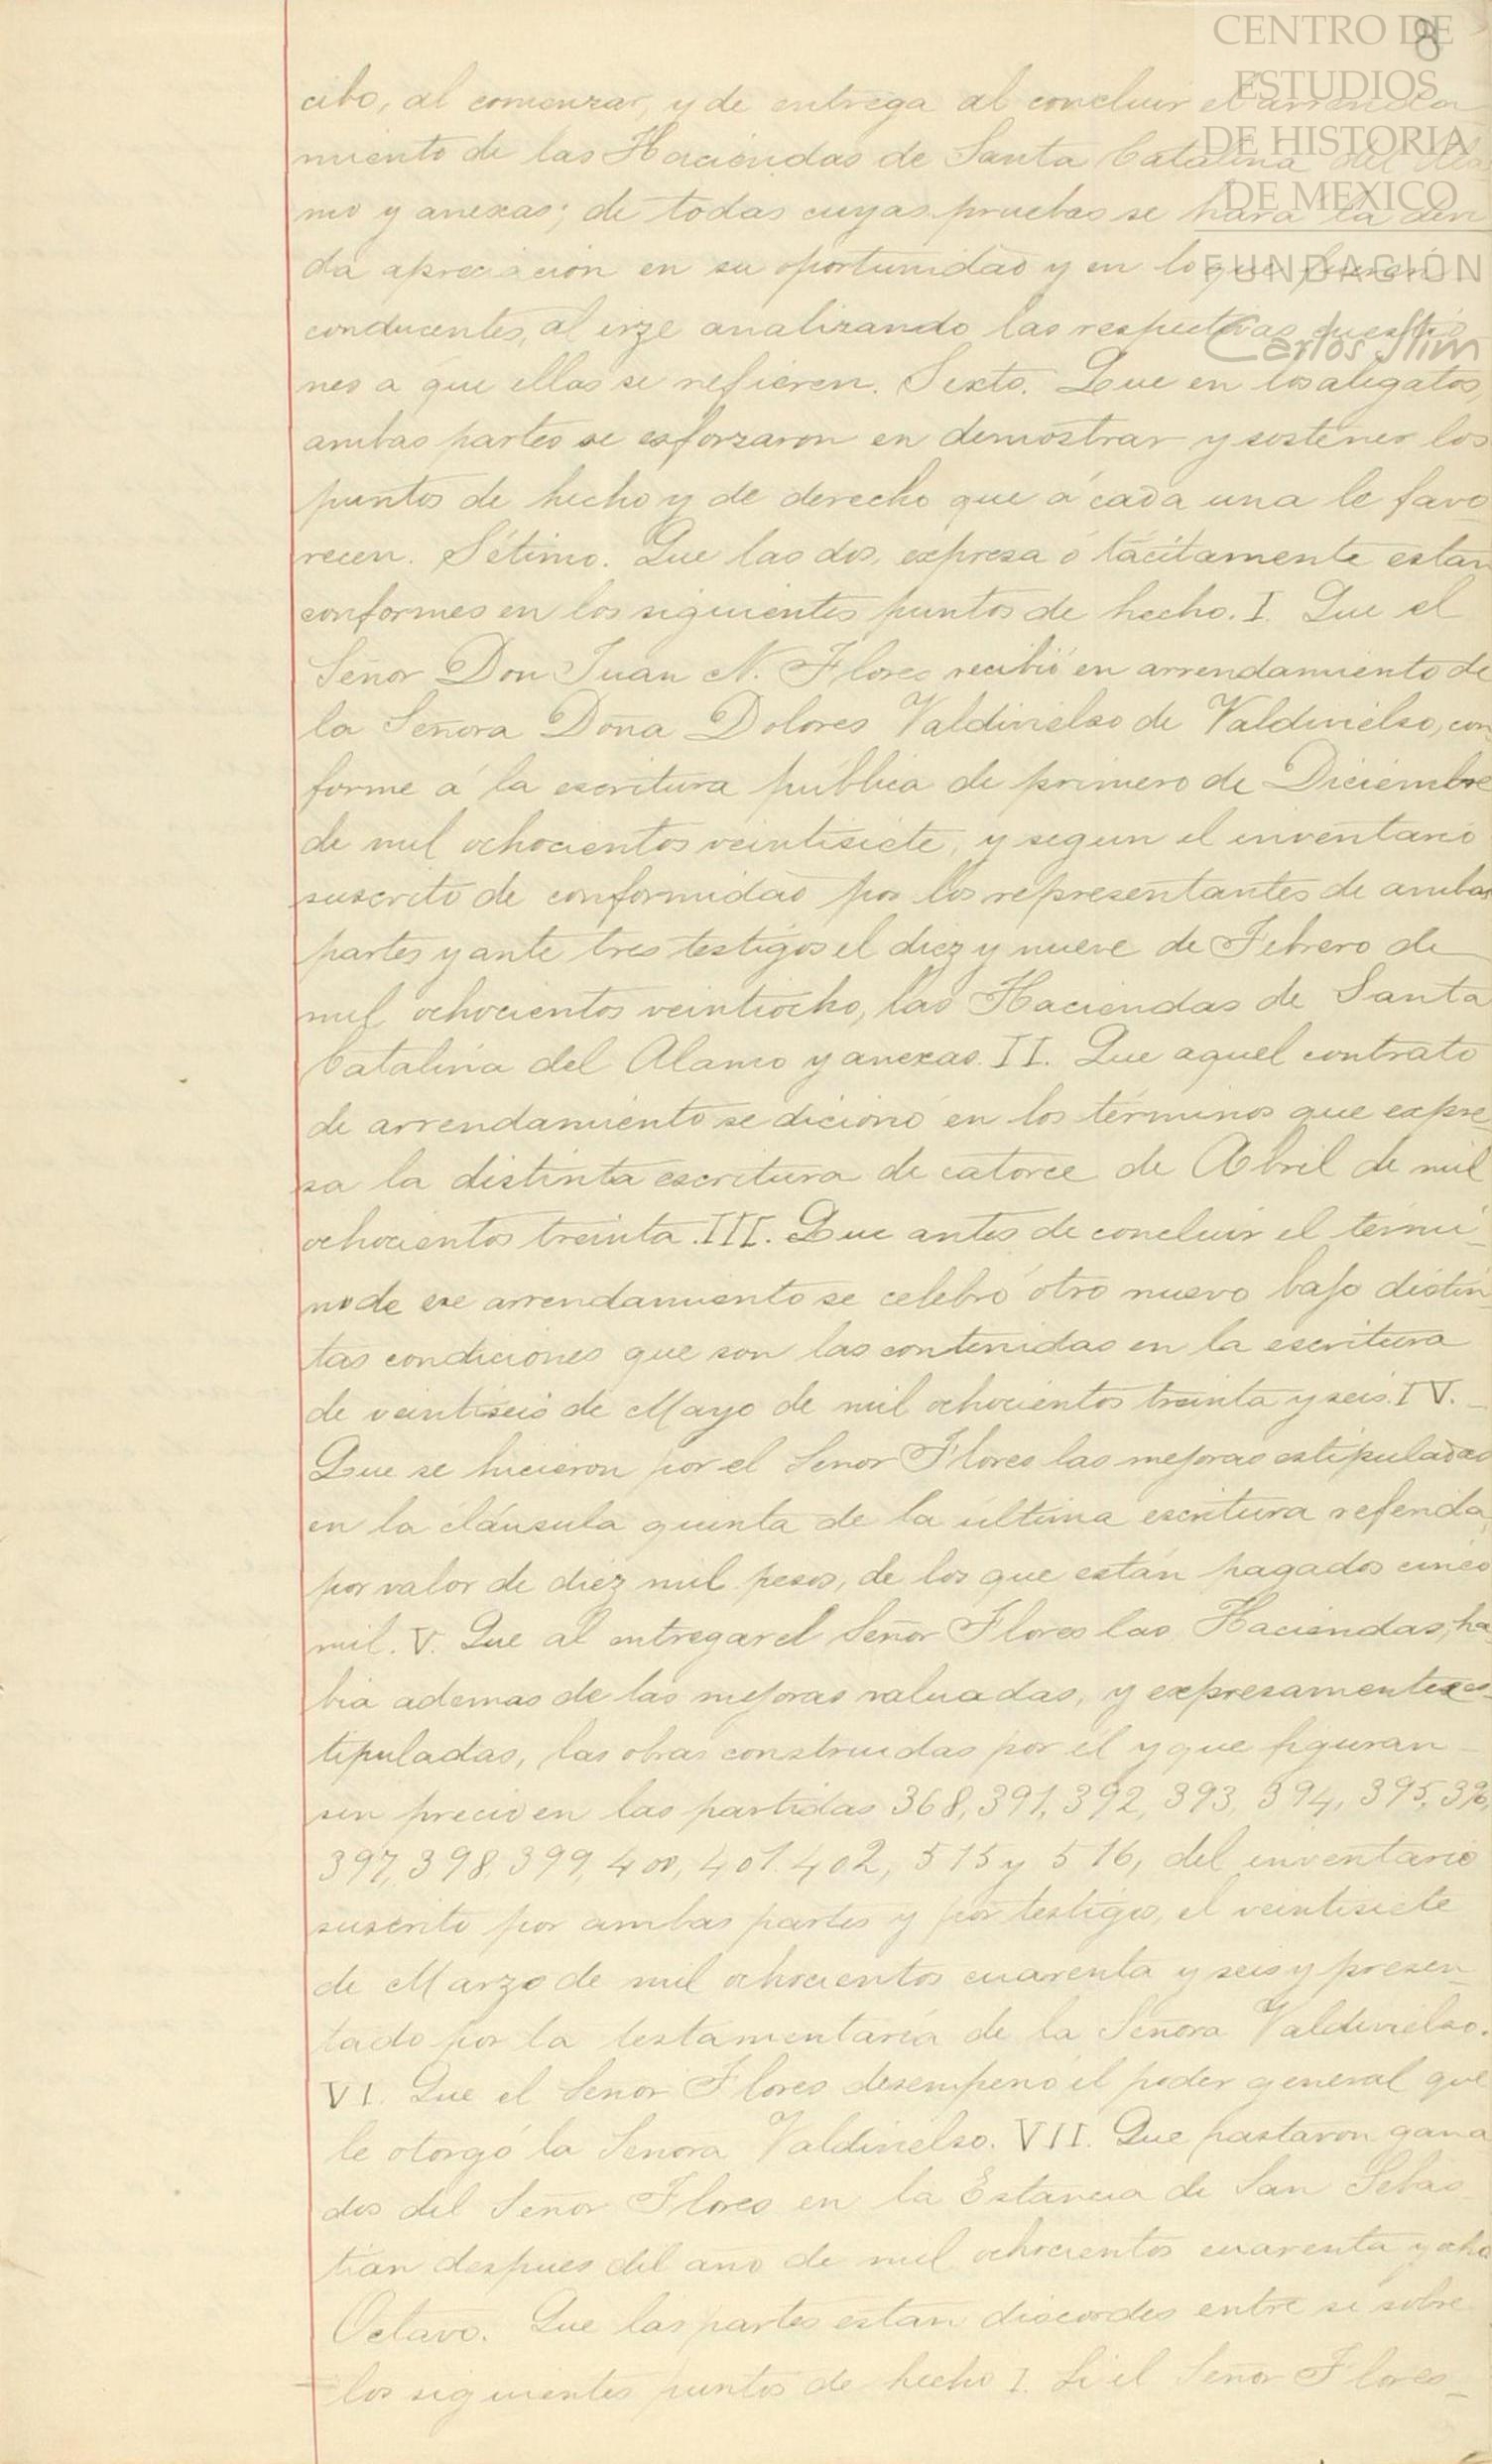 8
CENTRO DE
ESTUDIOS
DE HISTORIA
DE MEXICO
FUNDACIÓN
Carlos Slim
cibo, al comenzar, y de entrega al concluir el arrenda
miento de las Haciendas de Santa Catalina del Ala
mo y anexas; de todas cuyas pruebas se hará la debi
da apreciacion en su oportunidad y en lo que fueren
conducentes, al irze analizando las respectivas cuestio
nes a que ellas se refieren. Sexto. Que en los alegatos,
ambas partes se esforzaron en demostrar y sostener los
puntos de hecho y de derecho que á cada una le favo
recen. Sétimo. Que las dos, expresa ó tácitamente estan
conformes en los siguientes puntos de hecho. I. Que el
Señor Don Juan N. Flores recibió en arrendamiento de
la Señora Doña Dolores Valdivielso de Valdivielso, con
forme á la escritura pública de primero de Diciembre
de mil ochocientos veintisiete, y segun el inventario
suscrito de conformidad por los representantes de ambas
partes y ante tres testigos el diez y nueve de Febrero de
mil ochocientos veintiocho, las Haciendas de Santa
Catalina del Alamo y anexas. II. Que aquel contrato
de arrendamiento se dicionó en los términos que expre
sa la distinta escritura de catorce de Abril de mil
ochocientos treinta. III. Que antes de concluir el térmi
no de ese arrendamiento se celebró otro nuevo bajo distin
tas condiciones que son las contenidas en la escritura
de veintiseis de Mayo de mil ochocientos treinta y seis. IV.
Que se hicieron por el Señor Flores las mejoras estipuladas
en la cláusula quinta de la última escritura referida,
por valor de diez mil pesos, de los que están pagados cinco
mil. V. Que al entregar el Señor Flores las Haciendas, ha
bia ademas de las mejoras valuadas, y expresamente es
tipuladas, las obras construidas por él y que figuran
sin precio en las partidas 368, 391, 392, 393, 394, 395, 396,
397, 398, 399, 400, 401. 402, 515 y 516, del inventario
suscrito por ambas partes y por testigos, el veintisiete
de Marzo de mil ochocientos cuarenta y seis y presen
tado por la testamentaría de la Señora Valdivielso.
VI. Que el Señor Flores desempeñó el poder general que
le otorgó la Señora Valdivielso. VII. Que pastaron gana
dos del Señor Flores en la Estancia de San Sebas
tian despues del año de mil ochocientos cuarenta y ocho
Octavo. Que las partes estan discordes entre si sobre
los siguientes puntos de hecho I. Si el Señor Flores